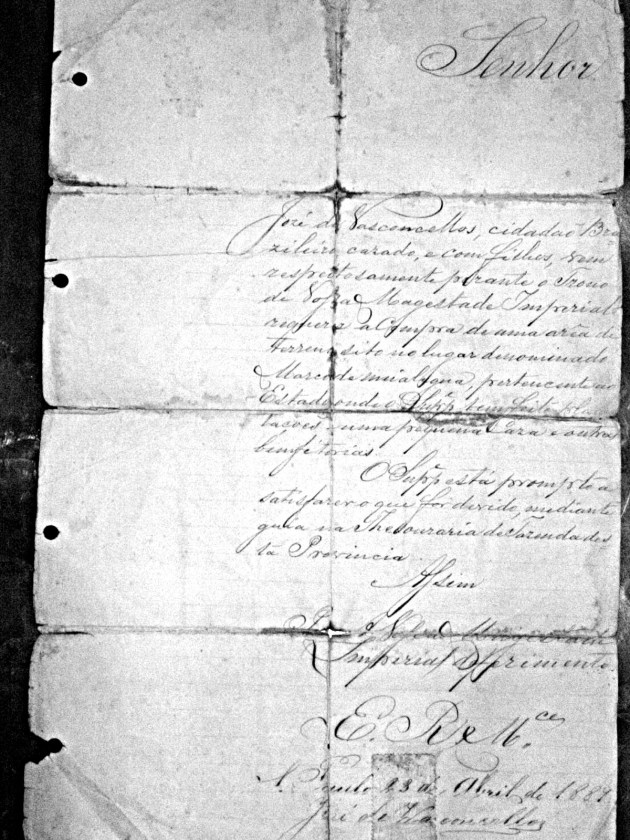 Senhor
José de Vasconcellos, cidadão Bra
zileiro cazado, e com filhos, vem
respeitosamente perante o Trono
de Vossa Magestade Imperial
requerer a Compra de uma aria de
terreno sito no lugar denominado
Marco de meia legoa, pertencente ao
Estado onde o Suppe. tem feito plan
tações e uma pequena Caza e outras
bemfeitorias.
O Suppe está prompto a
satisfazer o que for devido, mediante
guia na Thesouraria de Fazenda des
ta Provincia
Assim
Vossa
Imperial Defirimento
E. R. Mce.
S. Paulo 23 de Abril de 1887
José de Vasconcellos